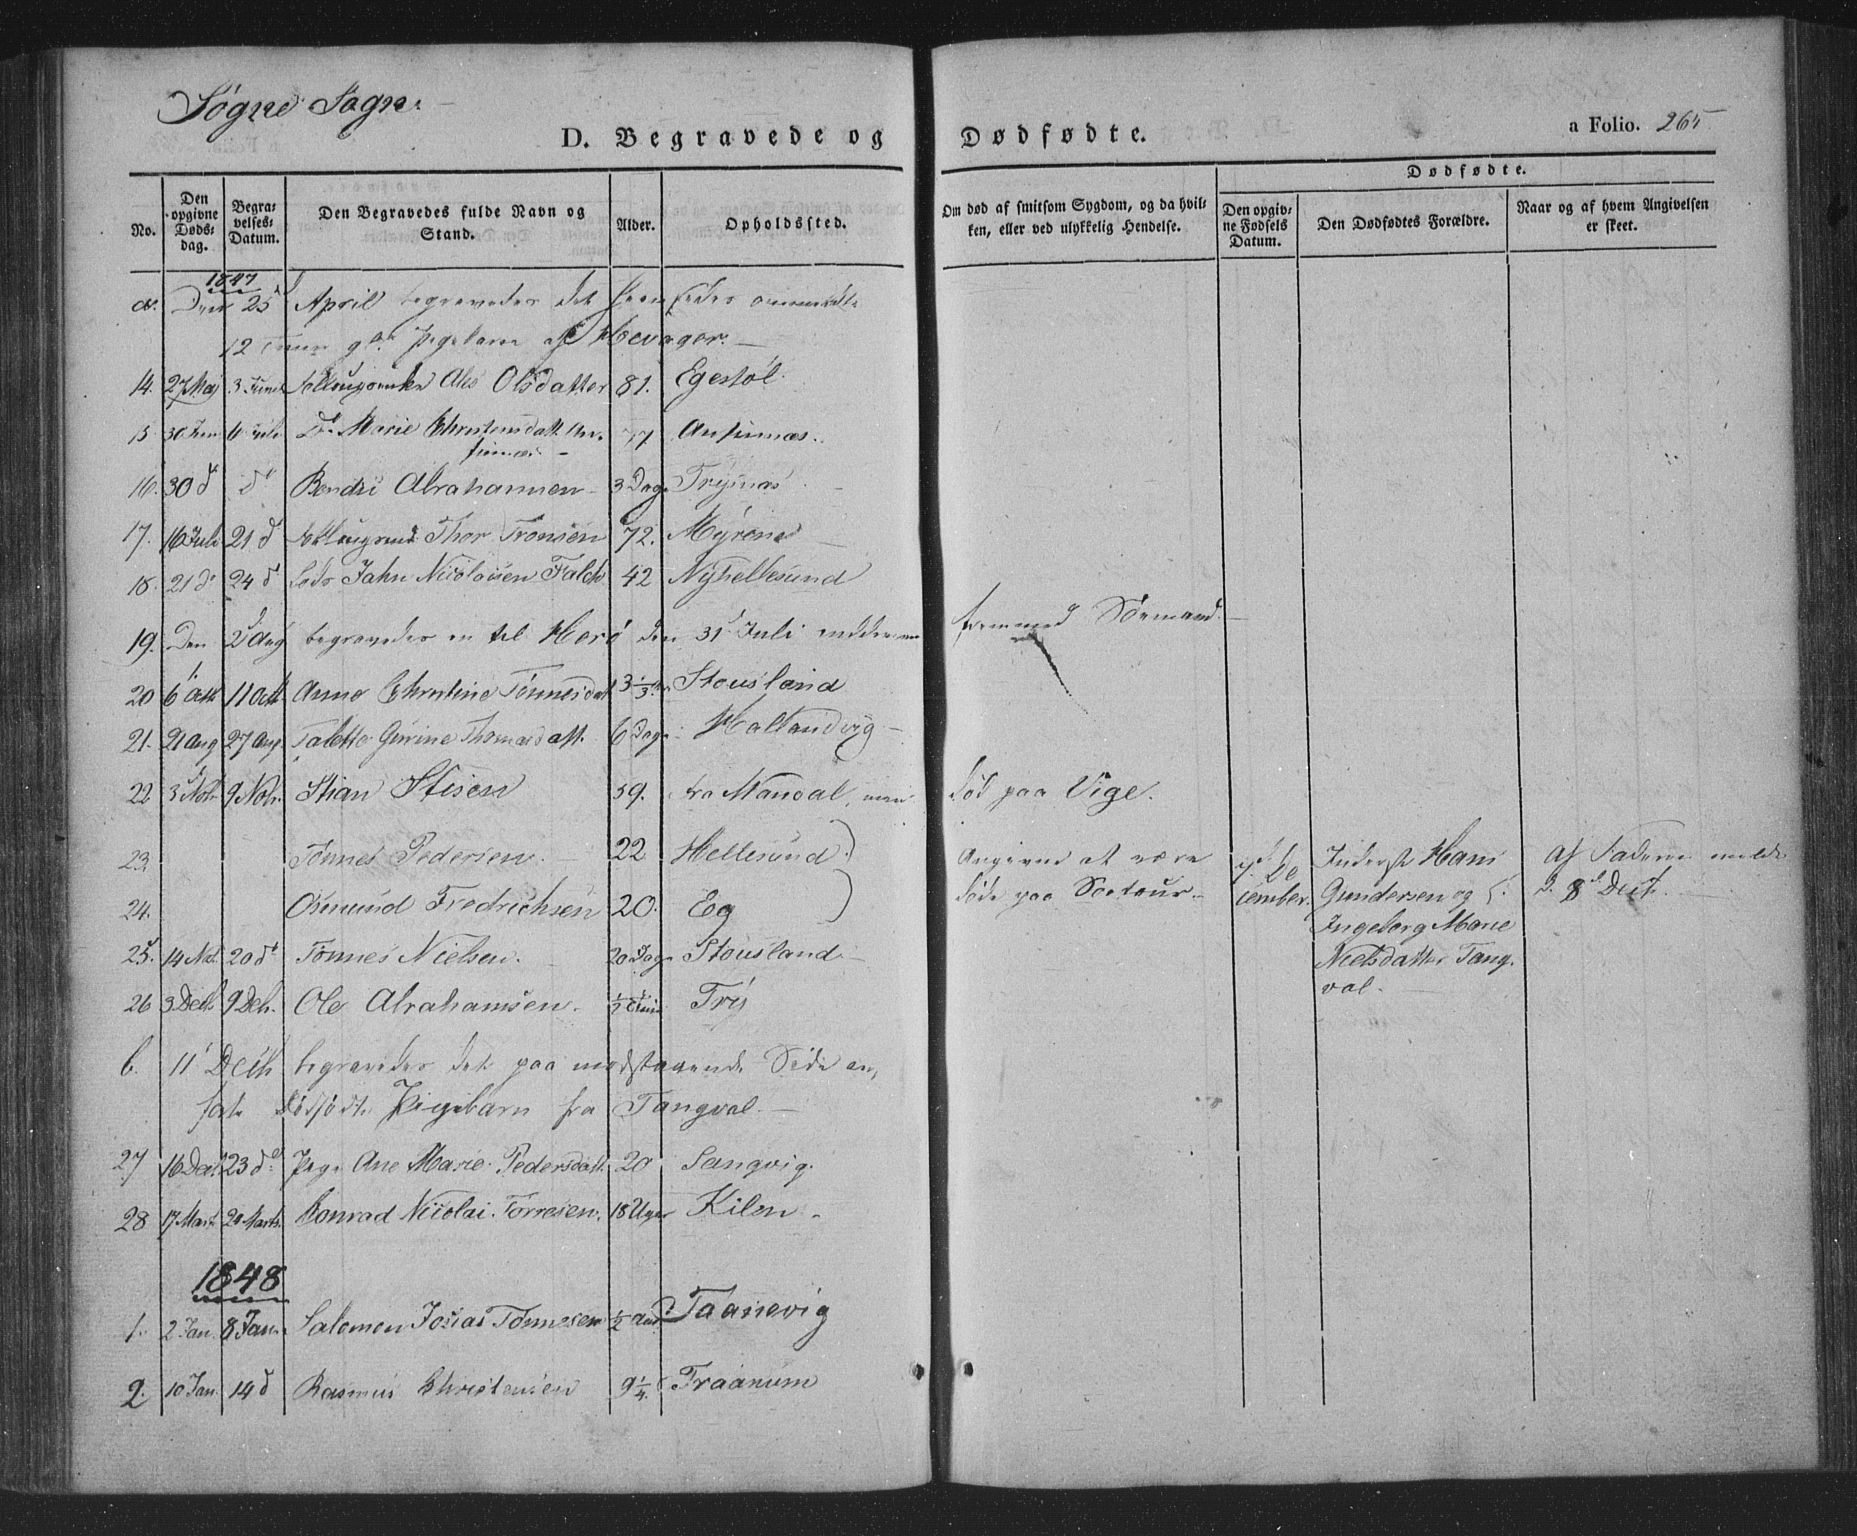 Søgne Sogn.
D. Begravede og Dødfødte.
a Folio. 265
No.
Den opgivne Døds-dag.
Begra-velses-Datum.
Den Begravedes fulde Navn og Stand.
Alder.
Opholdssted.
Om død af smitsom Sygdom, og da hvil-ken, eller ved ulykkelig Hendelse.
Dødfødte.
Den opgiv-ne Fødsels Datum.
Den Dødfødtes Forældre.
Naar og af hvem Angivelsen er skeet.
1847
a. Den 25d April begravedes det
12 gl. Pigebarn af Hevager.
14. 27 Maj 3 Juni Olsdatter 81. Egestøl
15 30 Jun 6 Juli Do Marie Christensdatt. 77
16. 30 d do Abrahamsen 3 Dage Trysnæs
17. 16 Juli 21 d Thor Tronsen 72. Myrene
18. 21 do 24 d Lods Jahn Nicolaisen Falch 42 Nyhellesund
19. Den 2d Aug begravedes en til Herø den 31 Juli fremmed Sømand.
20 6 Oct 11 Oct Anne Christine Tønnesdat 3 Stousland
21. 21 Aug 27 Aug. Talette Gurine Thomasdatt. 6 Dage Hallandvig
22 3 Nobr 9 Nobr. Stian Stisen 59. fra Mandal, men død paa Vige.
23 Tønnes Pedersen. 22 Hellesund) Angivne at være
24. Osmund Fredrichsen 20. Eg ) døde paa Søetour
7d December. Inderst Hans Gundersen og Ingeborg Marie Nielsdatter Tangval.
Af Faderen meldt d. 8d Decbr.
25. 14 Nov. 20 dt Tønnes Nielsen. 20 Dage Stousland
26 3 Decb 9 Deb. Ole Abrahamsen. ½ Time Try
b. 11 Decb begravedes det paa modstaaende Side anførte dødfødte Pigebarn fra Tangval.
27 16 Decb 23 d. Pige Ane Marie Pedersdatt. 20 Langvig.
28 17 Marts 20 Marts Conrad Nicolai Torresen. 18 Uger Kilen
1848
1. 2 Jan. 8 Jan. Salomon Josias Tønnesen ½ Aar Taanevig
2. 10 Jan. 14 d Rasmus Christensen 9¼. Traanum